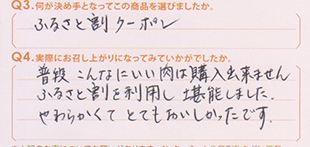 Q3.何が決め手となってこの商品を選びましたか。
ふるさと割クーポン
Q4.実際にお召し上がりになってみていかがでしたか。
普段 こんなにいい肉は購入出来ません
ふるさと割を利用し堪能しました。
やわらかくて とてもおいしかったです。